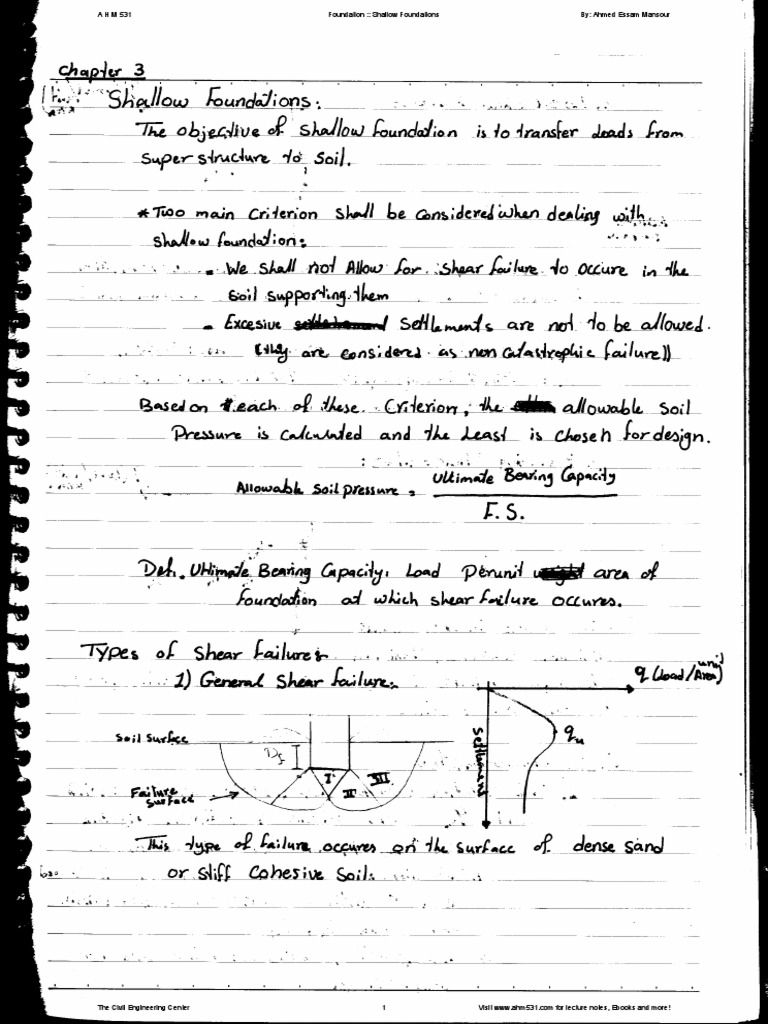 A H M 531 Foundation :: Shallow Foundations By: Ahmed Essam Mansour
Chapter 3
Shallow Foundations:
The objective of Shallow Foundation is to transfer Loads from
Super structure to Soil.
* Two main Criterion Shall be Considered when dealing with
shallow foundation:
- We Shall not Allow for Shear Failure to occure in the
Soil supporting them
- Excesive Settlements are not to be allowed.
(they are considered as non Catastrophic failure))
Based on each of these Criterion, the allowable Soil
Pressure is Calculated and the Least is chosen for design.
Allowable Soil pressure = Ultimate Bearing Capacity
F.S.
Def. Ultimate Bearing Capacity: Load Per unit area of
foundation at which shear failure occures.
Types of Shear failures:
1) General Shear failure:
q (Load/unit Area)
Soil Surface
Df
qu
Settlement
I
II
III
Failure
Surface
This type of failure occures on the surface of dense sand
or stiff Cohesive Soil.
The Civil Engineering Center 1 Visit www.ahm531.com for lecture notes, Ebooks and more!